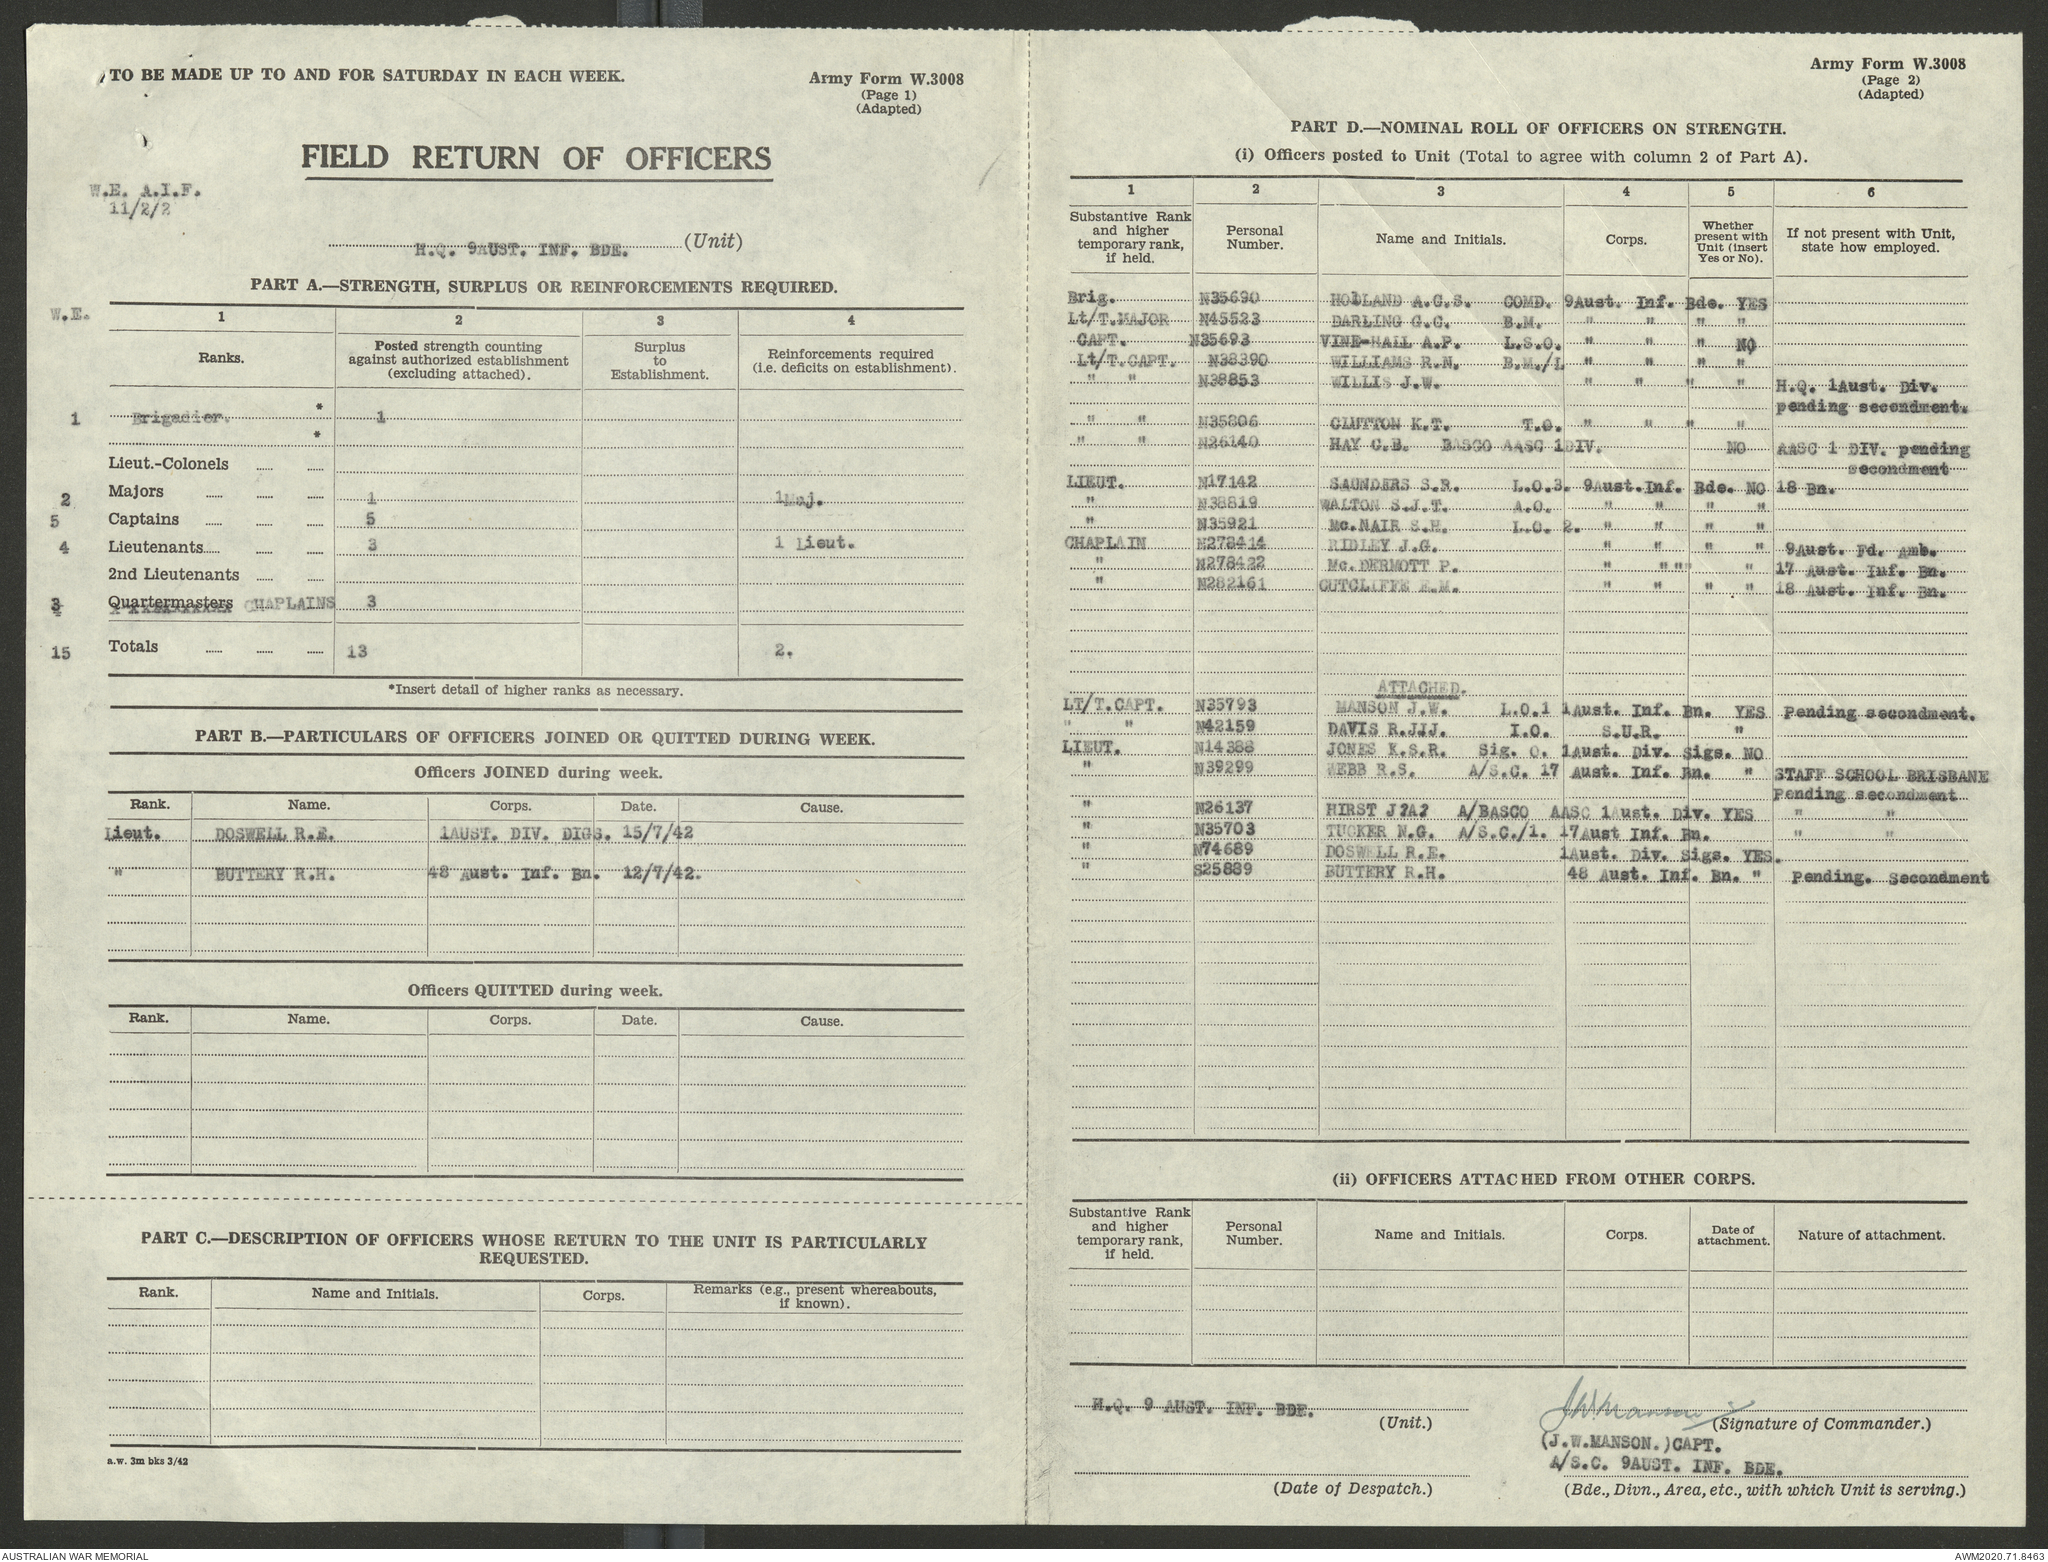 TO BE MADE UP TO AND FOR SATURDAY IN EACH WEEK.
Army Form W.3008
(Page 1)
(Adapted)
FIELD RETURN OF OFFICERS
W.E. A.I.F.
11/2/2
H.Q. 9AUST. INF. BDE. (Unit)
PART A.—STRENGTH, SURPLUS OR REINFORCEMENTS REQUIRED.
W.E. 1 2 3 4
Ranks. Posted strength counting against authorized establishment (excluding attached). Surplus to Establishment. Reinforcements required (i.e. deficits on establishment).
1 Brigadier. * 1
*
Lieut.-Colonels
2 Majors 1 1Maj.
5 Captains 5
4 Lieutenants 3 1 Lieut.
2nd Lieutenants
3 Quartermasters CHAPLAINS 3
15 Totals 13 2.
*Insert detail of higher ranks as necessary.
PART B.—PARTICULARS OF OFFICERS JOINED OR QUITTED DURING WEEK.
Officers JOINED during week.
Rank. Name. Corps. Date. Cause.
Lieut. DOSWELL R.E. 1AUST. DIV. DIGS. 15/7/42
" BUTTERY R.H. 48 Aust. Inf. Bn. 12/7/42.
Officers QUITTED during week.
Rank. Name. Corps. Date. Cause.
PART C.—DESCRIPTION OF OFFICERS WHOSE RETURN TO THE UNIT IS PARTICULARLY
REQUESTED.
Rank. Name and Initials. Corps. Remarks (e.g., present whereabouts, if known).
a.w. 3m bks 3/42
Army Form W.3008
(Page 2)
(Adapted)
PART D.—NOMINAL ROLL OF OFFICERS ON STRENGTH.
(i) Officers posted to Unit (Total to agree with column 2 of Part A).
1 2 3 4 5 6
Substantive Rank and higher temporary rank, if held. Personal Number. Name and Initials. Corps. Whether present with Unit (insert Yes or No). If not present with Unit, state how employed.
Brig. N35690 HOLLAND A.C.S. COMD. 9Aust. Inf. Bde. YES
Lt/T.MAJOR N45523 DARLING G.C. B.M. " " " "
CAPT. N35693 VINE-HALL A.P. L.S.O. " " " NO
Lt/T.CAPT. N38390 WILLIAMS R.N. B.M./L " " " "
" " N38853 WILLIS J.W. " " " " H.Q. 1Aust. Div.
pending secondment.
" " N35806 CLUTTON K.T. T.O. " " " "
" " N26140 HAY C.B. BASCO AASC 1DIV. NO AASC 1 DIV. pending
secondment
LIEUT. N17142 SAUNDERS S.R. L.O.3. 9Aust.Inf. Bde. NO 18 Bn.
" N38819 WALTON S.J.T. A.O. " " " "
" N35921 Mc.NAIR S.H. L.O. 2. " " " "
CHAPLAIN N278414 RIDLEY J.G. " " " " 9Aust. Fd. Amb.
" N278422 Mc.DERMOTT P. " " " " 17 Aust. Inf. Bn.
" N282161 CUTCLIFFE E.M. " " " " 18 Aust. Inf. Bn.
ATTACHED.
LT/T.CAPT. N35793 MANSON J.W. L.O.1 1Aust. Inf. Bn. YES Pending secondment.
" " N42159 DAVIS R.J.J. I.O. S.U.R. "
LIEUT. N14388 JONES K.S.R. Sig. O. 1Aust. Div. Sigs. NO
" N39299 WEBB R.S. A/S.C. 17 Aust. Inf. Bn. " STAFF SCHOOL BRISBANE
Pending secondment
" N26137 HIRST J?A? A/BASCO AASC 1Aust. Div. YES " "
" N35703 TUCKER N.G. A/S.C./1. 17Aust Inf. Bn. " "
" N74689 DOSWELL R.E. 1Aust. Div. Sigs. YES.
" S25889 BUTTERY R.H. 48 Aust. Inf. Bn. " Pending. Secondment
(ii) OFFICERS ATTACHED FROM OTHER CORPS.
Substantive Rank and higher temporary rank, if held. Personal Number. Name and Initials. Corps. Date of attachment. Nature of attachment.
H.Q. 9 AUST. INF. BDE. (Unit.)
JWManson (Signature of Commander.)
(J.W.MANSON.)CAPT.
A/S.C. 9AUST. INF. BDE.
(Date of Despatch.) (Bde., Divn., Area, etc., with which Unit is serving.)
AUSTRALIAN WAR MEMORIAL
AWM2020.71.8463